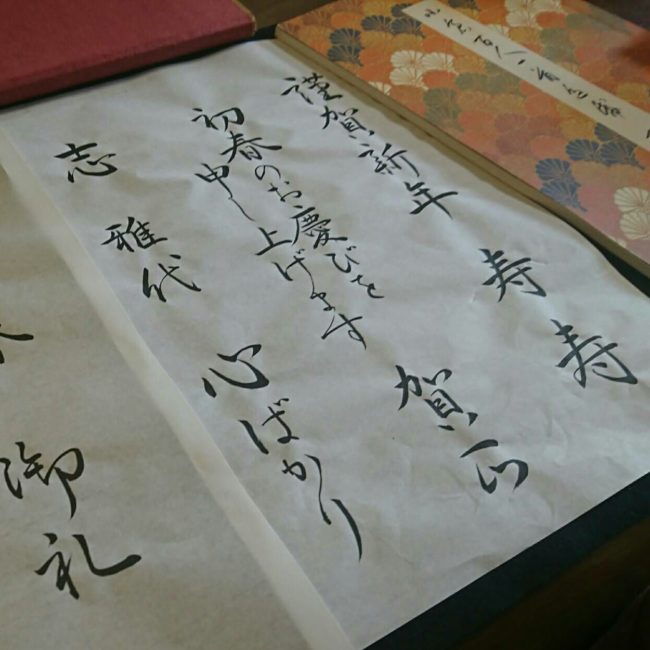 百人一首
謹賀新年
寿
寿
初春のお慶びを
申し上げます
賀正
志
雅代
心ばかり
御礼